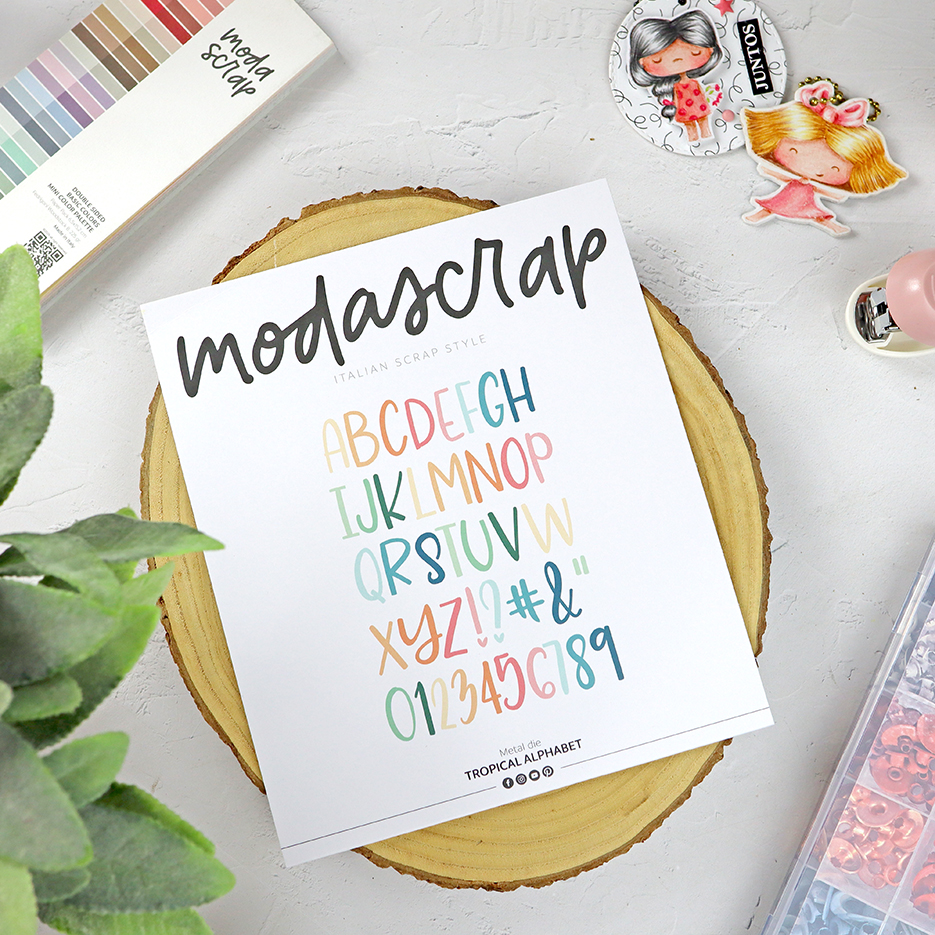 moda
scrap
DOUBLE SIDED
BASIC COLORS
MINI COLOR PALETTE
Made in Italy
JUNTOS
modascrap
ITALIAN SCRAP STYLE
ABCDEFGH
IJKLMNOP
QRSTUVW
XYZ!?#&"
0123456789
Metal die
TROPICAL ALPHABET